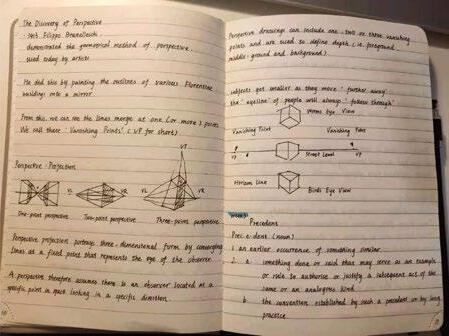 The Discovery of Perspective
- 1413, Filippo Brunelleschi
demonstrated the geometrical method of perspective
used today by artists
He did this by painting the outlines of various Florentine
buildings onto a mirror
From this, we can see the lines merge at one (or more) points
We call these 'Vanishing Points' (VP for short)
Perspective Projection
VT
VL VR VL VR
One-point perspective Two-point perspective Three-point perspective
Perspective projection portrays three-dimensional form by converging
lines at a fixed point that represents the eye of the observer.
A perspective therefore assumes there is an observer located at a
specific point in space looking in a specific direction.
Perspective drawings can include one, two or three vanishing
points and are used to define depth (i.e. foreground,
middle-ground and background)
subjects get smaller as they move 'further away'
the 'eyeline' of people will always 'follow through'
Worms Eye View
Vanishing Point Vanishing Point
VP Street Level VP
Horizon Line
Birds Eye View
Precedent
Prec·e·dent (noun)
1 an earlier occurrence of something similar
2 a something done or said that may serve as an example
or rule to authorise or justify a subsequent act of the
same or an analogous kind
b the convention established by such a precedent or by long
practice